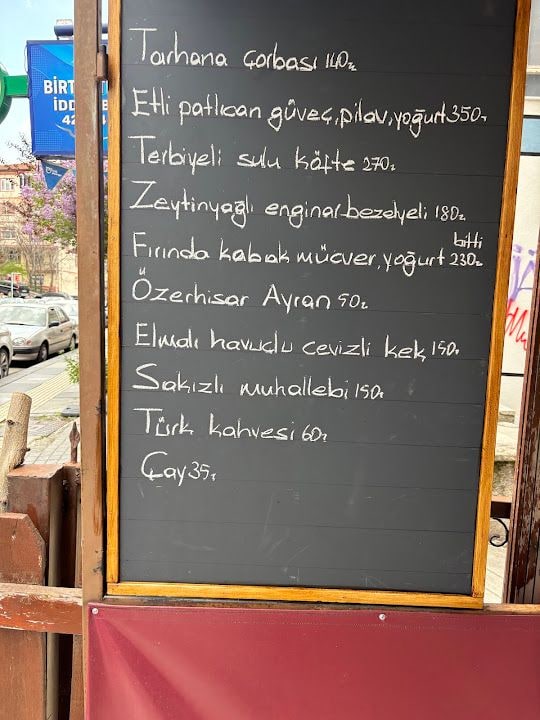 BİRT
İDD
Tarhana çorbası 140₺
Etli patlıcan güveç, pilav, yoğurt 350₺
Terbiyeli sulu köfte 270₺
Zeytinyağlı enginar-bezelyeli 180₺
bitti
Fırında kabak mücver, yoğurt 230₺
Özerhisar Ayran 50₺
Elmalı havuçlu cevizli kek 150₺
Sakızlı muhallebi 150₺
Türk kahvesi 60₺
Çay 35₺